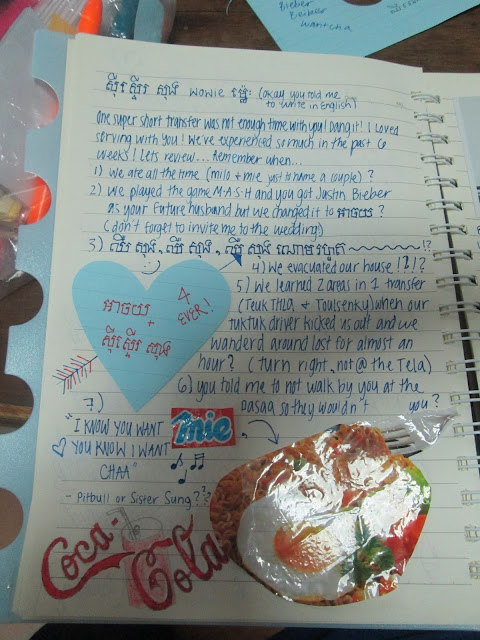 Bieber
Beiber
wantcha
ស៊ីស្ទើរ ស៊ុង wowie ម៉្លេះ (okay you told me
to write in English)
One super short transfer was not enough time with you! Dang it! I loved
serving with You! We've experienced so much in the past 6
weeks! Lets review... Remember when...
1) we ate all the time (milo + mie just to name a couple)?
2) We played the game M·A·S·H and you got Justin Bieber
as your Future husband but we changed it to អាចយ?
(don't forget to invite me to the wedding)
3) ឈឺ ស៊ុង, ឈឺ ស៊ុង, ឈឺ ស៊ុង !?
4) We evacuated our house!?!?
អាចយ
4 EVER!
ស៊ីស្ទើរ ស៊ុង
5) We learned 2 areas in 1 transfer
(Teuk Thla + Toulsenky) when our
tuktuk driver kicked us out and we
wanderd around lost for almost an
hour? (turn right, not @ the Tela)
6) you told me to not walk by you at the
pasaa so they wouldn't you?
7)
"I KNOW YOU WANT mie
YOU KNOW I WANT
CHAA"
- Pitbull or Sister Sung?
Coca-Cola